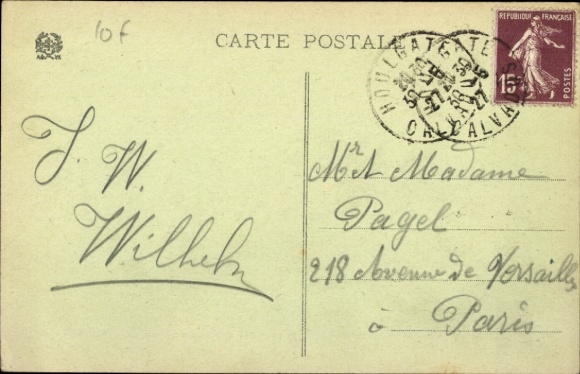 10 f
CARTE POSTALE
HOULGATE
CALVADOS
REPUBLIQUE FRANÇAISE
15c
POSTES
J. W.
Wilhelm
Mr & Madame
Pagel
218 Avenue de Versailles
à Paris